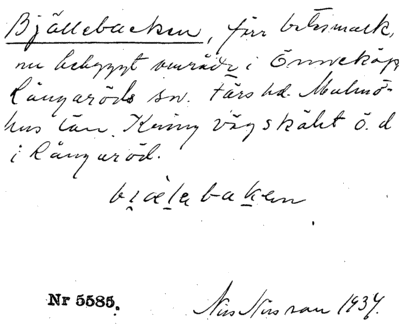 Bjällebacken, förr betesmark,
nu bebyggt område i Önneköp
Långaröds sn. Färs hd. Malmö-
hus län. Kring vägskälet ö. d
i Långaröd.
bjælabakən
Nr 5585.
Nils Nilsson 1937.